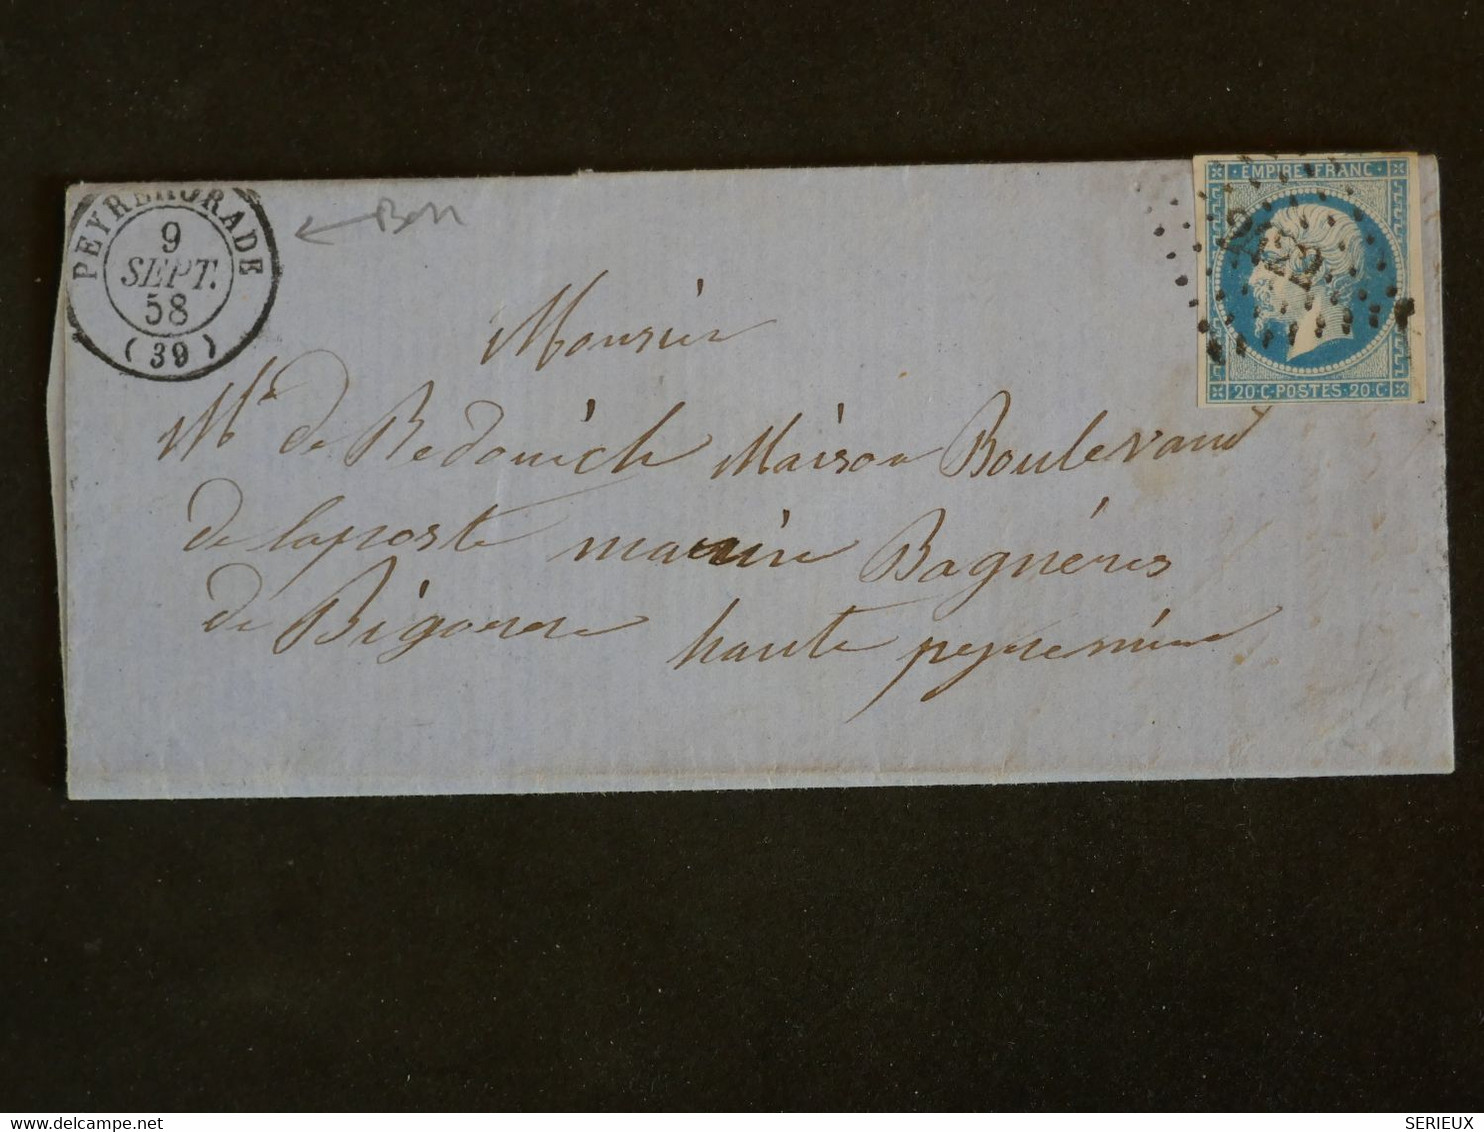 PEYREHORADE
9
SEPT.
58
(39)
Bon
EMPIRE FRANC.
20·C·POSTES·20·C
Monsieur
Mr de Redouich Maison Boulevard
de laposte
Bagnéres
de Bigorre
haute pyrennée
SERIEUX